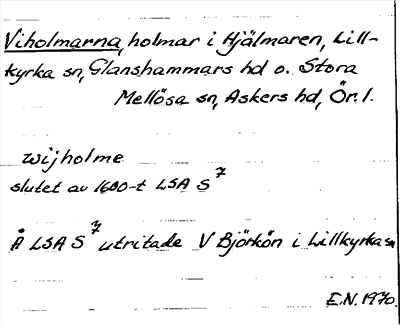 Viholmarna, holmar i Hjälmaren, Lill-
kyrka sn, Glanshammars hd o. Stora
Mellösa sn, Askers hd, Ör. l.
Wijholme
slutet av 1600-t LSA S 7
Å LSA S 7 utritade V Björkön i Lillkyrka sn
E.N. 1970.